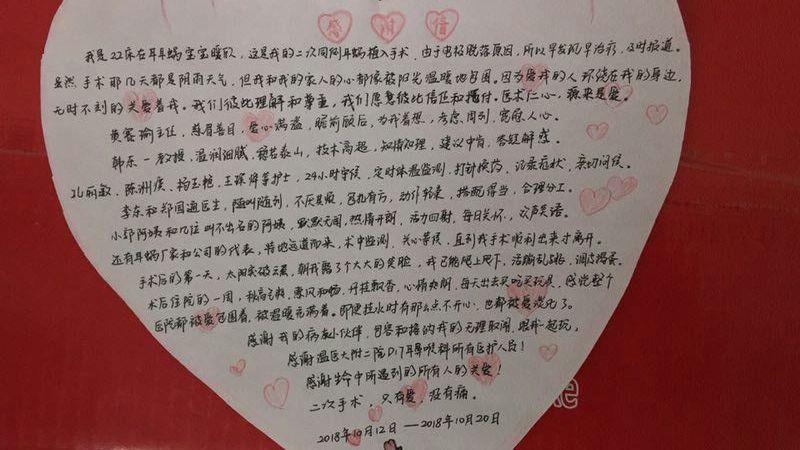 感谢信
我是22床左耳耳蜗宝宝暖歆，这是我的二次同侧耳蜗植入手术，由于电极脱落原因，所以早发现早治疗，及时报道。
虽然手术那几天都是阴雨天气，但我和我的家人的心都像被阳光温暖地包围。因为爱我的人环绕在我的身边，
无时不刻的关爱着我。我们彼此理解和尊重，我们愿意彼此信任和托付。医术仁心，病来是爱。
黄睿瑜主任，慈眉善目，爱心满溢，瞻前顾后，为我着想，考虑周到，宽慰人心。
韩东一教授，温润细腻，稳若泰山，技术高超，知情知理，建议中肯，答疑解惑。
孔丽敏，陈洲庆，杨玉，王琛烨等护士，24小时守候，定时体温监测，打针换药，记录症状，亲切问候。
李东和郑国通医生，随叫随到，不厌其烦，包扎有方，动作轻柔，搭配得当，合理分工。
小邹阿姨和几位叫不出名的阿姨，默默无闻，热情开朗，活力四射，每日关怀，欢声笑语。
还有耳蜗厂家和公司的代表，特地远道而来，术中监测，关心等候，直到我手术顺利出来才离开。
手术后的第一天，太阳突破云层，朝我露了个大大的笑脸，我已能爬上爬下，活蹦乱跳，调皮捣蛋。
术后住院的一周，秋高气爽，惠风和畅，丹桂飘香，心情舒朗，每天出去买吃买玩具，感觉整个
医院都被爱包围着，被温暖充满着。即使挂水时有那么点不开心，也都被爱淡化了。
感谢我的病友小伙伴，包容和接纳我的无理取闹，跟我一起玩。
感谢温医大附二院D17耳鼻喉科所有医护人员！
感谢生命中所遇到的所有人的关爱！
二次手术，只有爱，没有痛。
2018年10月12日—2018年10月20日